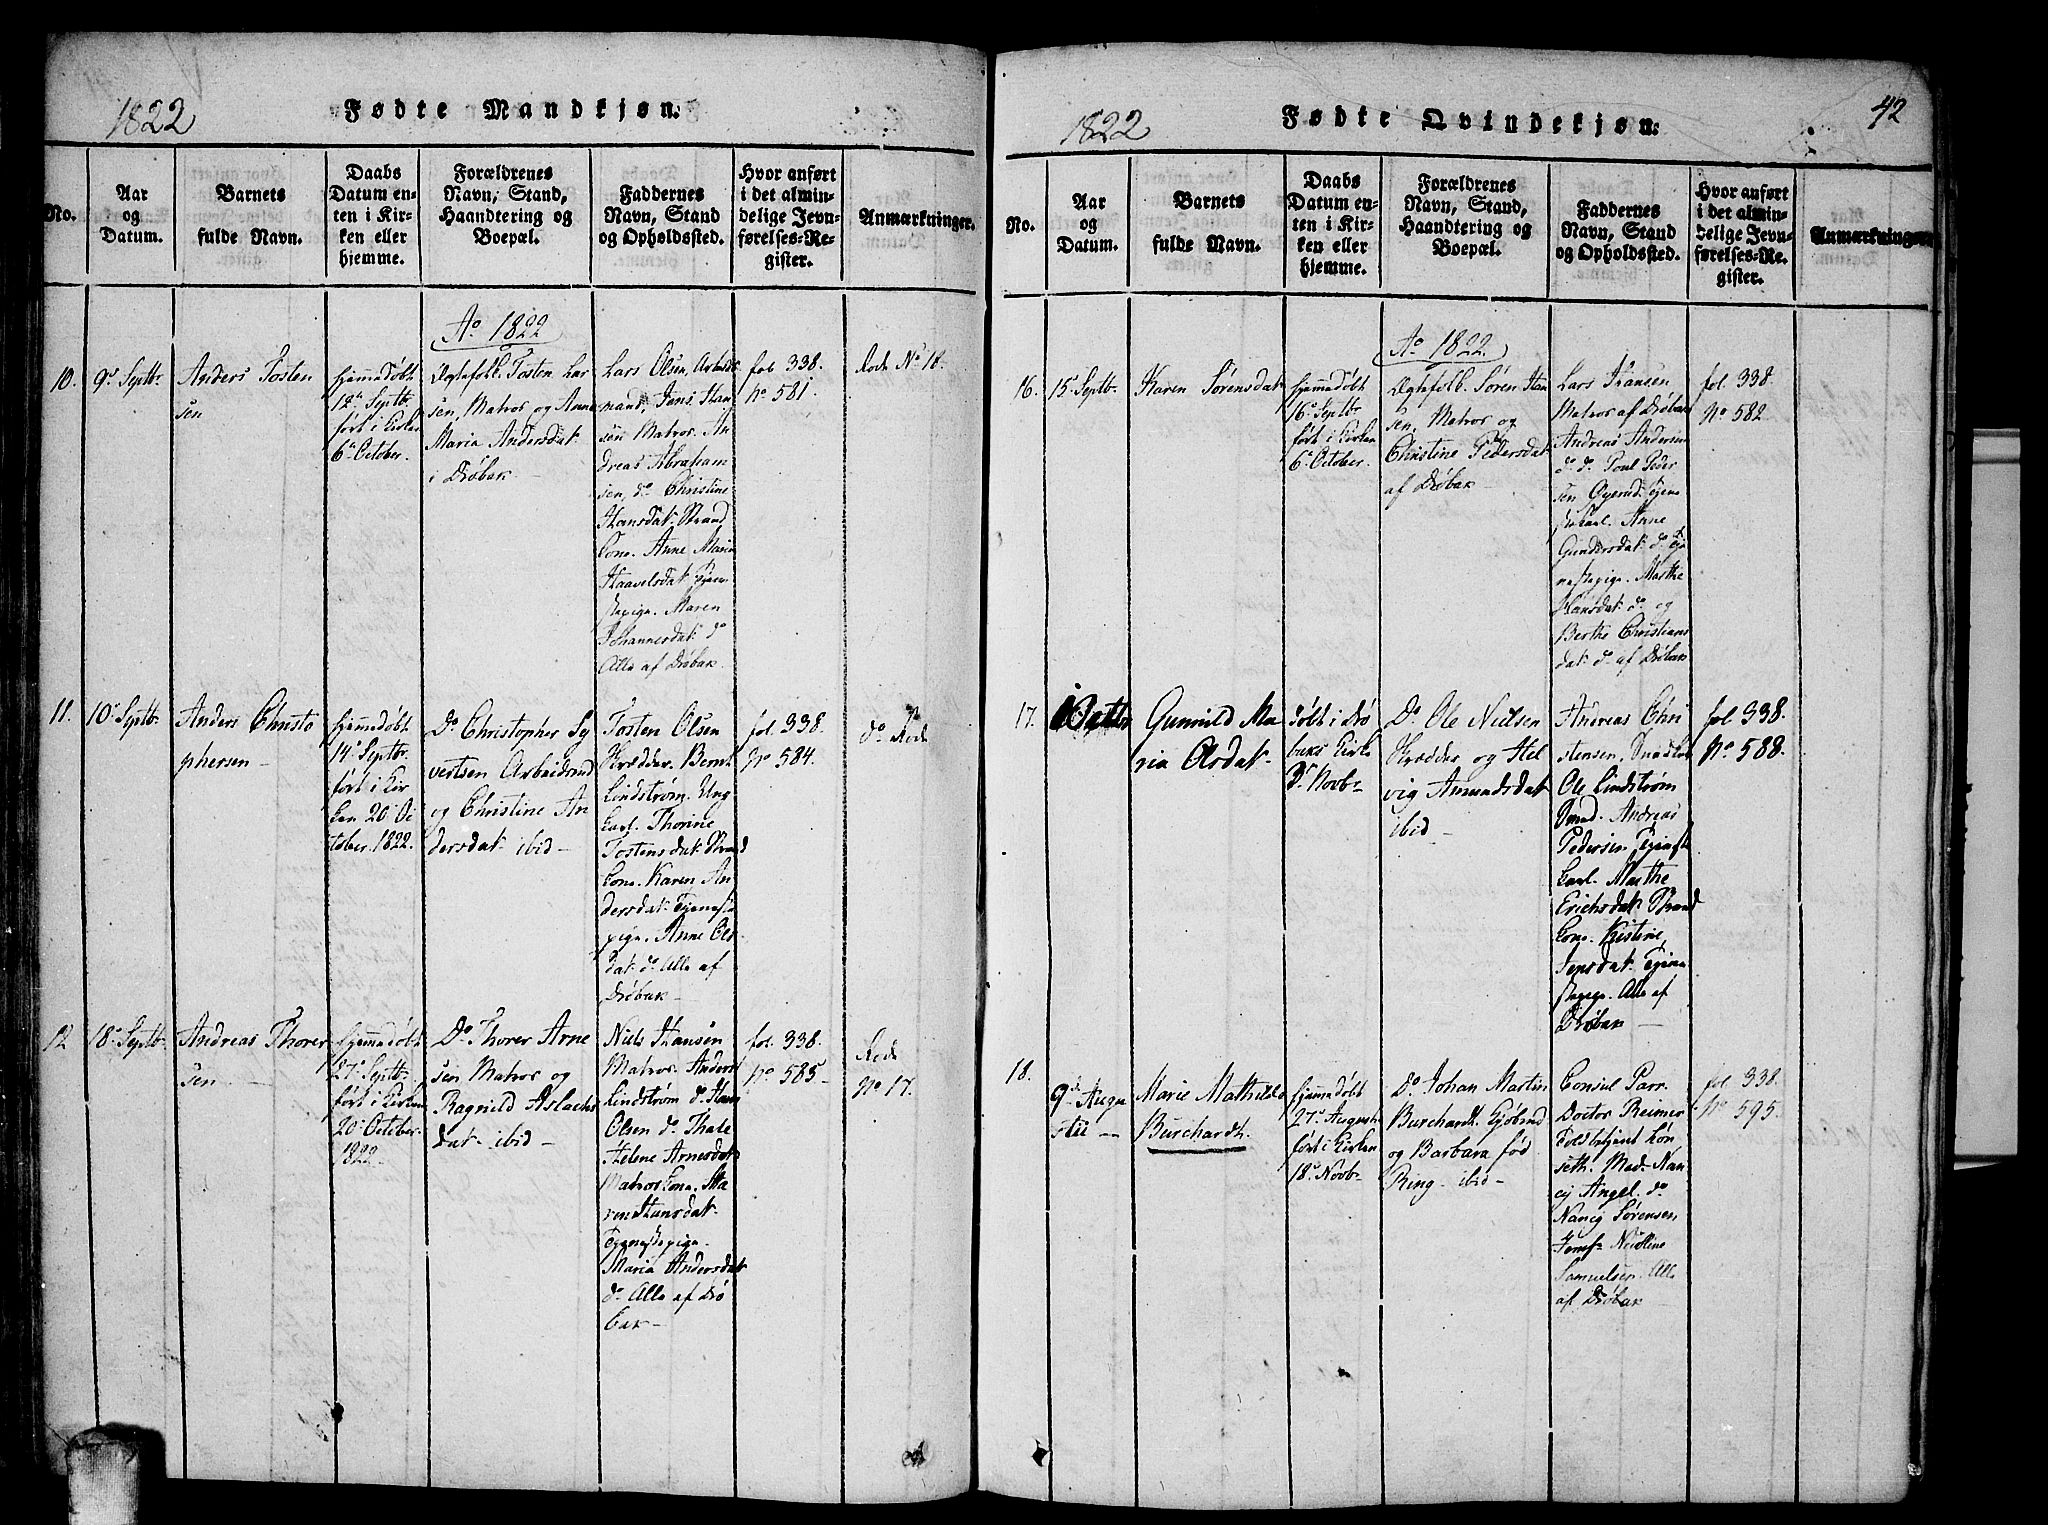 1822
Fødte Mandkjøn.
No.
Aar
og
Datum.
Barnets
fulde Navn.
Daabs
Datum en-
ten i Kir-
ken eller
hjemme.
Forældrenes
Navn, Stand,
Haandtering og
Boepæl.
Faddernes
Navn, Stand
og Opholdssted.
Hvor anført
i det almin-
delige Jevn-
førelses-Re-
gister.
Anmærkninger.
Ao 1822
10.
9de Septbr.
Anders Tosten
sen
hjemmedøbt
12te Septbr.
ført i Kirken
6te October.
Ægtefolk. Tosten Lar
sen, Matros og Anne
Maria Andersdatr.
i Drøbak
Lars Olsen, Arbeids
mand, Jens Han
sen Matros. An
dreas Abraham
sen, do Christine
Hansdatr. Strand
kone. Anne Maria
Haavelsdatr. tjene
stepige. Maren
Johannesdatr. do
Alle af Drøbak.
fol 338.
No 581.
Rode No 18.
11.
10de Septbr.
Anders Christo
phersen
hjemmedøbt
14de Septbr.
ført i Kir
ken 20de Oc
tober. 1822.
Do Christopher Sy
vertsen Arbeidsmd
og Christine An
dersdatr. ibid
Tosten Olsen
Skrædder. Bernt
Lindstrøm. Ung
karl. Thorine
Tostensdatr. Strand
kone. Karen An
dersdatr. Tjeneste
pige. Anne Ols
datr. do. Alle af
Drøbak
fol. 338.
No 584.
do Rode
12
18de Septbr.
Andreas Thorer
sen
hjemmedøbt
27de Septbr.
ført i Kirken
20de October.
1822
Do Thorer Arne
sen Matros og
Ragnild Aslachs
datr. ibid
Niels Hansen
Matros. Anders
Lindstrøm do. Hans
Olsen do. Thale
Helene Arnesdatr.
Matroskone. Ma
ren Hansdatr.
Tjenestepige.
Maria Andersdatr.
do. Alle af Drø
bak
fol. 338.
No 585
Rode
No 17.
1822
Fødte Qvindekjøn.
42
No.
Aar
og
Datum.
Barnets
fulde Navn.
Daabs
Datum en-
ten i Kir-
ken eller
hjemme.
Forældrenes
Navn, Stand,
Haandtering og
Boepæl.
Faddernes
Navn, Stand
og Opholdssted.
Hvor anført
i det almin-
delige Jevn-
førelses-Re-
gister.
Anmærkninger.
Ao 1822
16.
15de Septbr.
Karen Sørensdatr
hjemmedøbt
16de Septbr
ført i Kirken
6te October.
Ægtefolk. Søren Han
sen, Matros og
Christine Pedersdatr
af Drøbak
Lars Hansen
Matros af Drøbak
Andreas Andersen
do. do. Poul Peder
sen tjene
stekarl. Anne
Gundersdatr. do. tje
nestepige. Marthe
Hansdatr. do. og
Berthe Christians
datr. do. af Drøbak
fol. 338.
No 582
17.
Gunnild Ma
ria Olsdatr.
døbt i Drø
baks Kirke
3de Novbr
Do. Ole Nielsen
Skrædder og Hel
vig Amundsdatr
ibid
Andreas Chri
stensen, Snedker
Ole Lindstrøm
Smed. Andreas
Pedersen Tjeneste
karl. Marthe
Erichsdatr Strand
kone. Kistine
Jensdatr. Tjene
stepige. Alle af
Drøbak
fol 338.
No 588.
18.
9de Augu
stii
Marie Mathilde
Burchardt.
hjemmedøbt
27de August
ført i Kirken
18de Novbr
Do Johan Martin
Burchardt. Kjøbmd
og Barbara fød
Ring ibid
Consul Parr.
Doctor Reimer
Toldbetjent Løn
seth. Mad. Nan
cy Angel. do.
Nancy Sørensen,
Jomfr Neidline
Samuelsen. Alle
af Drøbak
fol 338.
No 595.